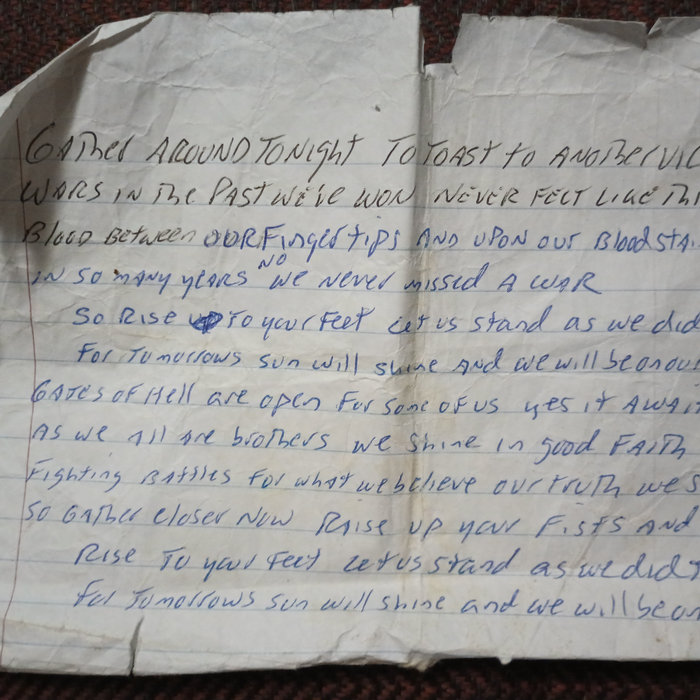 GATher AROUND TONight TO TOAST to ANOTher VIC
WARS IN The PAST WE'VE WON NEVER FELT LIKE Thi
BLOOD BETween OUR Finger tips AND UPON OUR BloodSTAI
NO
IN SO MANY years We Never missed A WAR
So RISE UP TO your Feet Let us stand as we did
For Tomorrows sun will shine AND we will be on our
GATES OF Hell are open For some OF US yes it AWAI
AS we All Are brothers we shine in good FAITH
Fighting BATTles For what we believe our truth we s
SO GATher closer NOW RAise up your FISTS AND
RISE TO your Feet Let us stand as we did
For Tomorrows sun will shine and we will be on